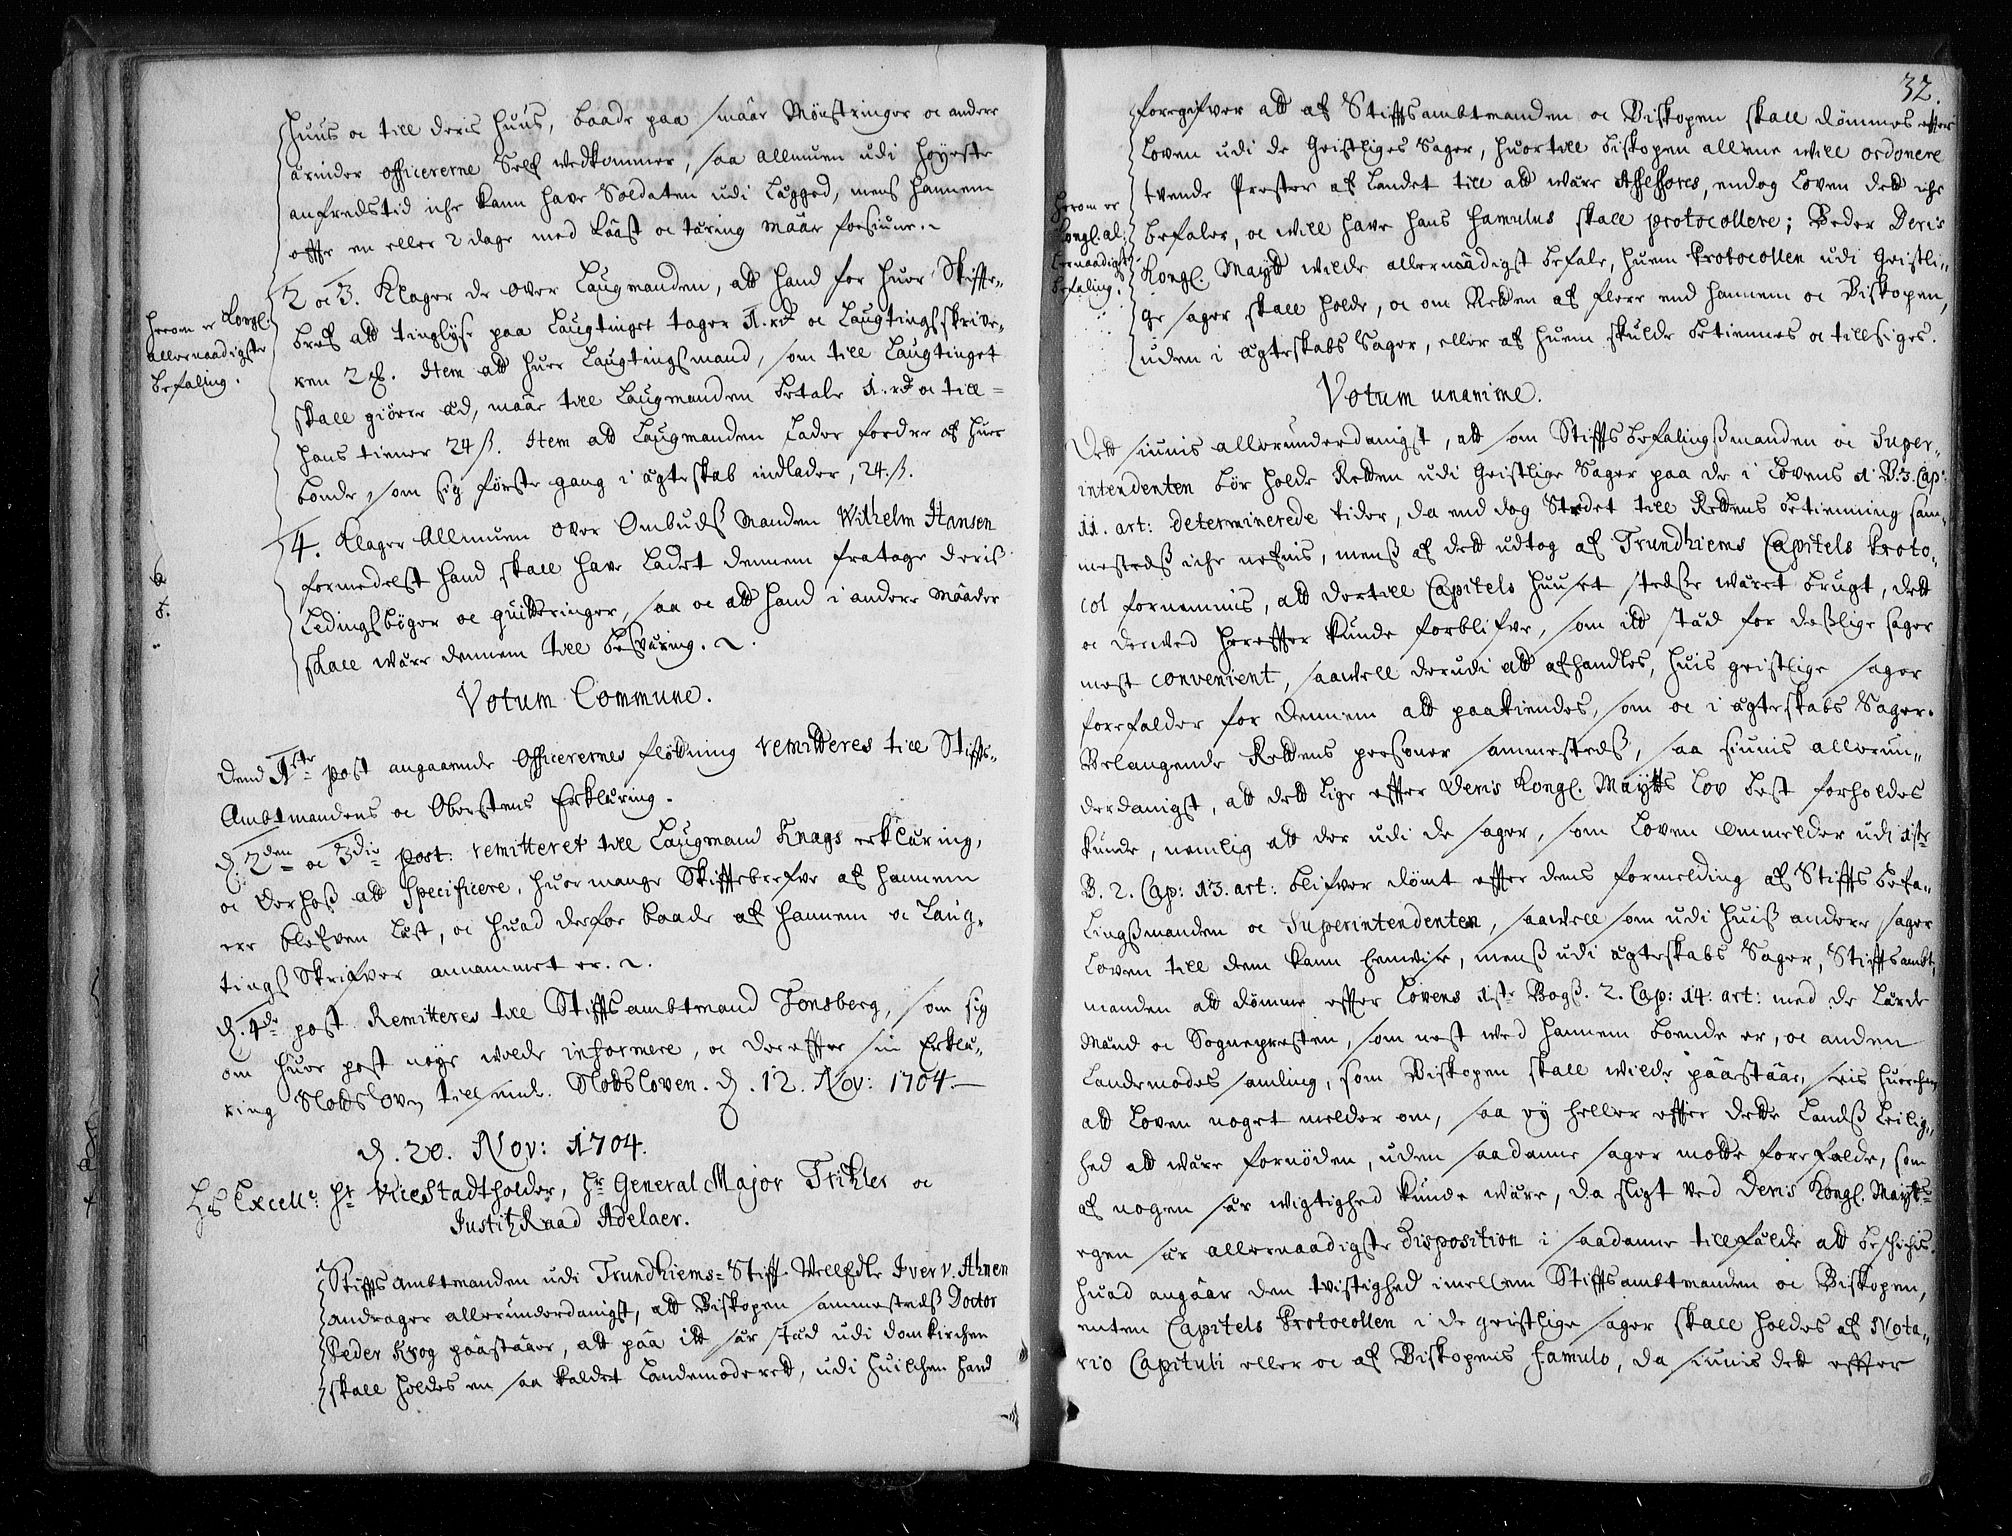 Huus oc till deris Huus, baade paa smaae Mönstringer oc andere
ärinder officererne Self wedkommer, saa allmuen udi høyeste
anfredstid icke kann have Soldaten udi Läyged, mens hannem
effter en eller 2 dage med Läst oc täring maae forsiune.
2 oc 3. Klager de over Laugmanden, att hand for huer Skiffte-
bref att tinglyse paa Laugtinget tager 1. rd oc Laugtingsskrive-
ren 2 . Item att huer Laugtingsmand, som till Laugtinget
skall giörer æd, maae till Laugmanden betale 1. rd oc till
hans tiener 24 ß. Item att Laugmanden lader fordre af huer
bonde som sig første gang i ägteskab indlader, 24. ß.
Herom er Kongl.
allernaadigste
befaling.
4. Klager Allmuen over Ombudsmanden Wilhelm Hansen
formedelst hand skall have ladet dennem fratage deris
Ledingsbøger oc quitteringer, saa oc att hand i andere maader
skall være dennem till besväring.
Votum Commune.
Dend 1ste post angaaende Officerernes fløttning remitteres till Stiffts-
Ambtmandens oc Oberstens Erkläring.
d. 2den oc 3die post. remitteret till Laugmand Knags erkläring,
oc derhoß att Specificere, huor mange Skifftebrefve af hannem
ere blefven läst, oc huad derfor baade af hannem oc Laug-
tings Skrifver annammet er.
d. 4de post Remitteres till Stifftsambtmand Tonsberg, som sig
om huer post nøye wilde informere, oc dereffter sin Erklä-
ring Slottsloven tillsende. Slottsloven. d. 12. Nov: 1704.
d. 20. Nov: 1704.
Hs Excell: Hr Vicestadtholder, Hr General Major Trichler oc
Justitz Raad Adelaer.
Stifftsambtmanden udi Trundhiems-Stifft Well Edle Iver v. Ahnen
andrager allerunderdanigst, att Biskopen sammesteds Doctor
Peder Krog paastaaer, att paa itt sær stæd udi domkirchen
skall holdes en saa kaldet Landemoderett, udi huilchen hand
32.
foregifver att af Stifftsambtmanden oc Biskopen skall dømmes effter
Loven udi de Geistliges Sager, huortill biskopen allene will ordonere
tvende Prester af Landet till att være Assessores, endog Loven dett icke
befaler, oc will have hans famulus skall protocollere; Beder Deris
Kongl. Maytt wilde allernådigst befale, huem Protocollen udi Geistli-
ge sager skall holde, oc om Retten af flere end hannem oc Biskopen,
uden i ägteskabs Sager, eller af huem skulde betiennes oc tillsiges.
Herom er
Kongl. al-
lernaadigst
befaling.
Votum unanime.
Dett siunis allerunderdanigst, att som Stifftsbefalingsmanden oc Super-
intendenten bør holde Retten udi Geistlige Sager paa de i Lovens 1. B. 3. Cap:
11. art: determinerede tider, da end dog Stedet till Rettens betienning sam-
mesteds icke nefnis, menß af dett udtog af Trundhiems Capitels Proto-
col fornemmis, att dertill Capitels Huuset stedse wäret brugt, dett
oc derwed hereffter kunde forblifve, som itt stæd for deßlige sager
mest convenient, saawell derudi att afhandles, huis geistlige sager
forefalder for dennem att paakiendes, som oc i ägteskabs Sager.
Belangende Rettens persohner sammesteds, saa siunis allerun-
derdanigst, att dett lige effter Deris Kongl. Maytts Lov best forholdes
kunde, nemlig att der udi de sager, som Loven ommelder udi 1ste
B. 2. Cap: 13. art: blifver dømt effter dens formelding af Stiffts befa-
lingsmanden oc Superintendenten, saawell som udi huis andere sager
Loven till dem kann henvise, menß udi ägteskabs Sager, Stifftsambt-
manden att dømme effter Lovens 1ste Bogs. 2. Cap: 14. art: med de Lærde
Mænd oc Sognepresten, som nest wed hannem boende er, oc anden
Landemodes samling, som Biskopen skall wilde paastaae,
att Loven noget melder om, saa ey heller effter dette Lands Leilig-
hed att være fornøden, uden saadanne sager motte forefalde, som
af nogen sær wigtighed kunde være, da sligt ved Deris Kongl. Maytts
egen sær allernaadigste Disposition i saadanne tillfælde att beschichis.
Huad angaar den tvistighed imellem Stifftsambtmanden oc Biskopen,
enten Capitels Protocollen i de geistlige sager skall holdes af Nota-
rio Capituli eller oc af Biskopens famulo, da siunis dett effter